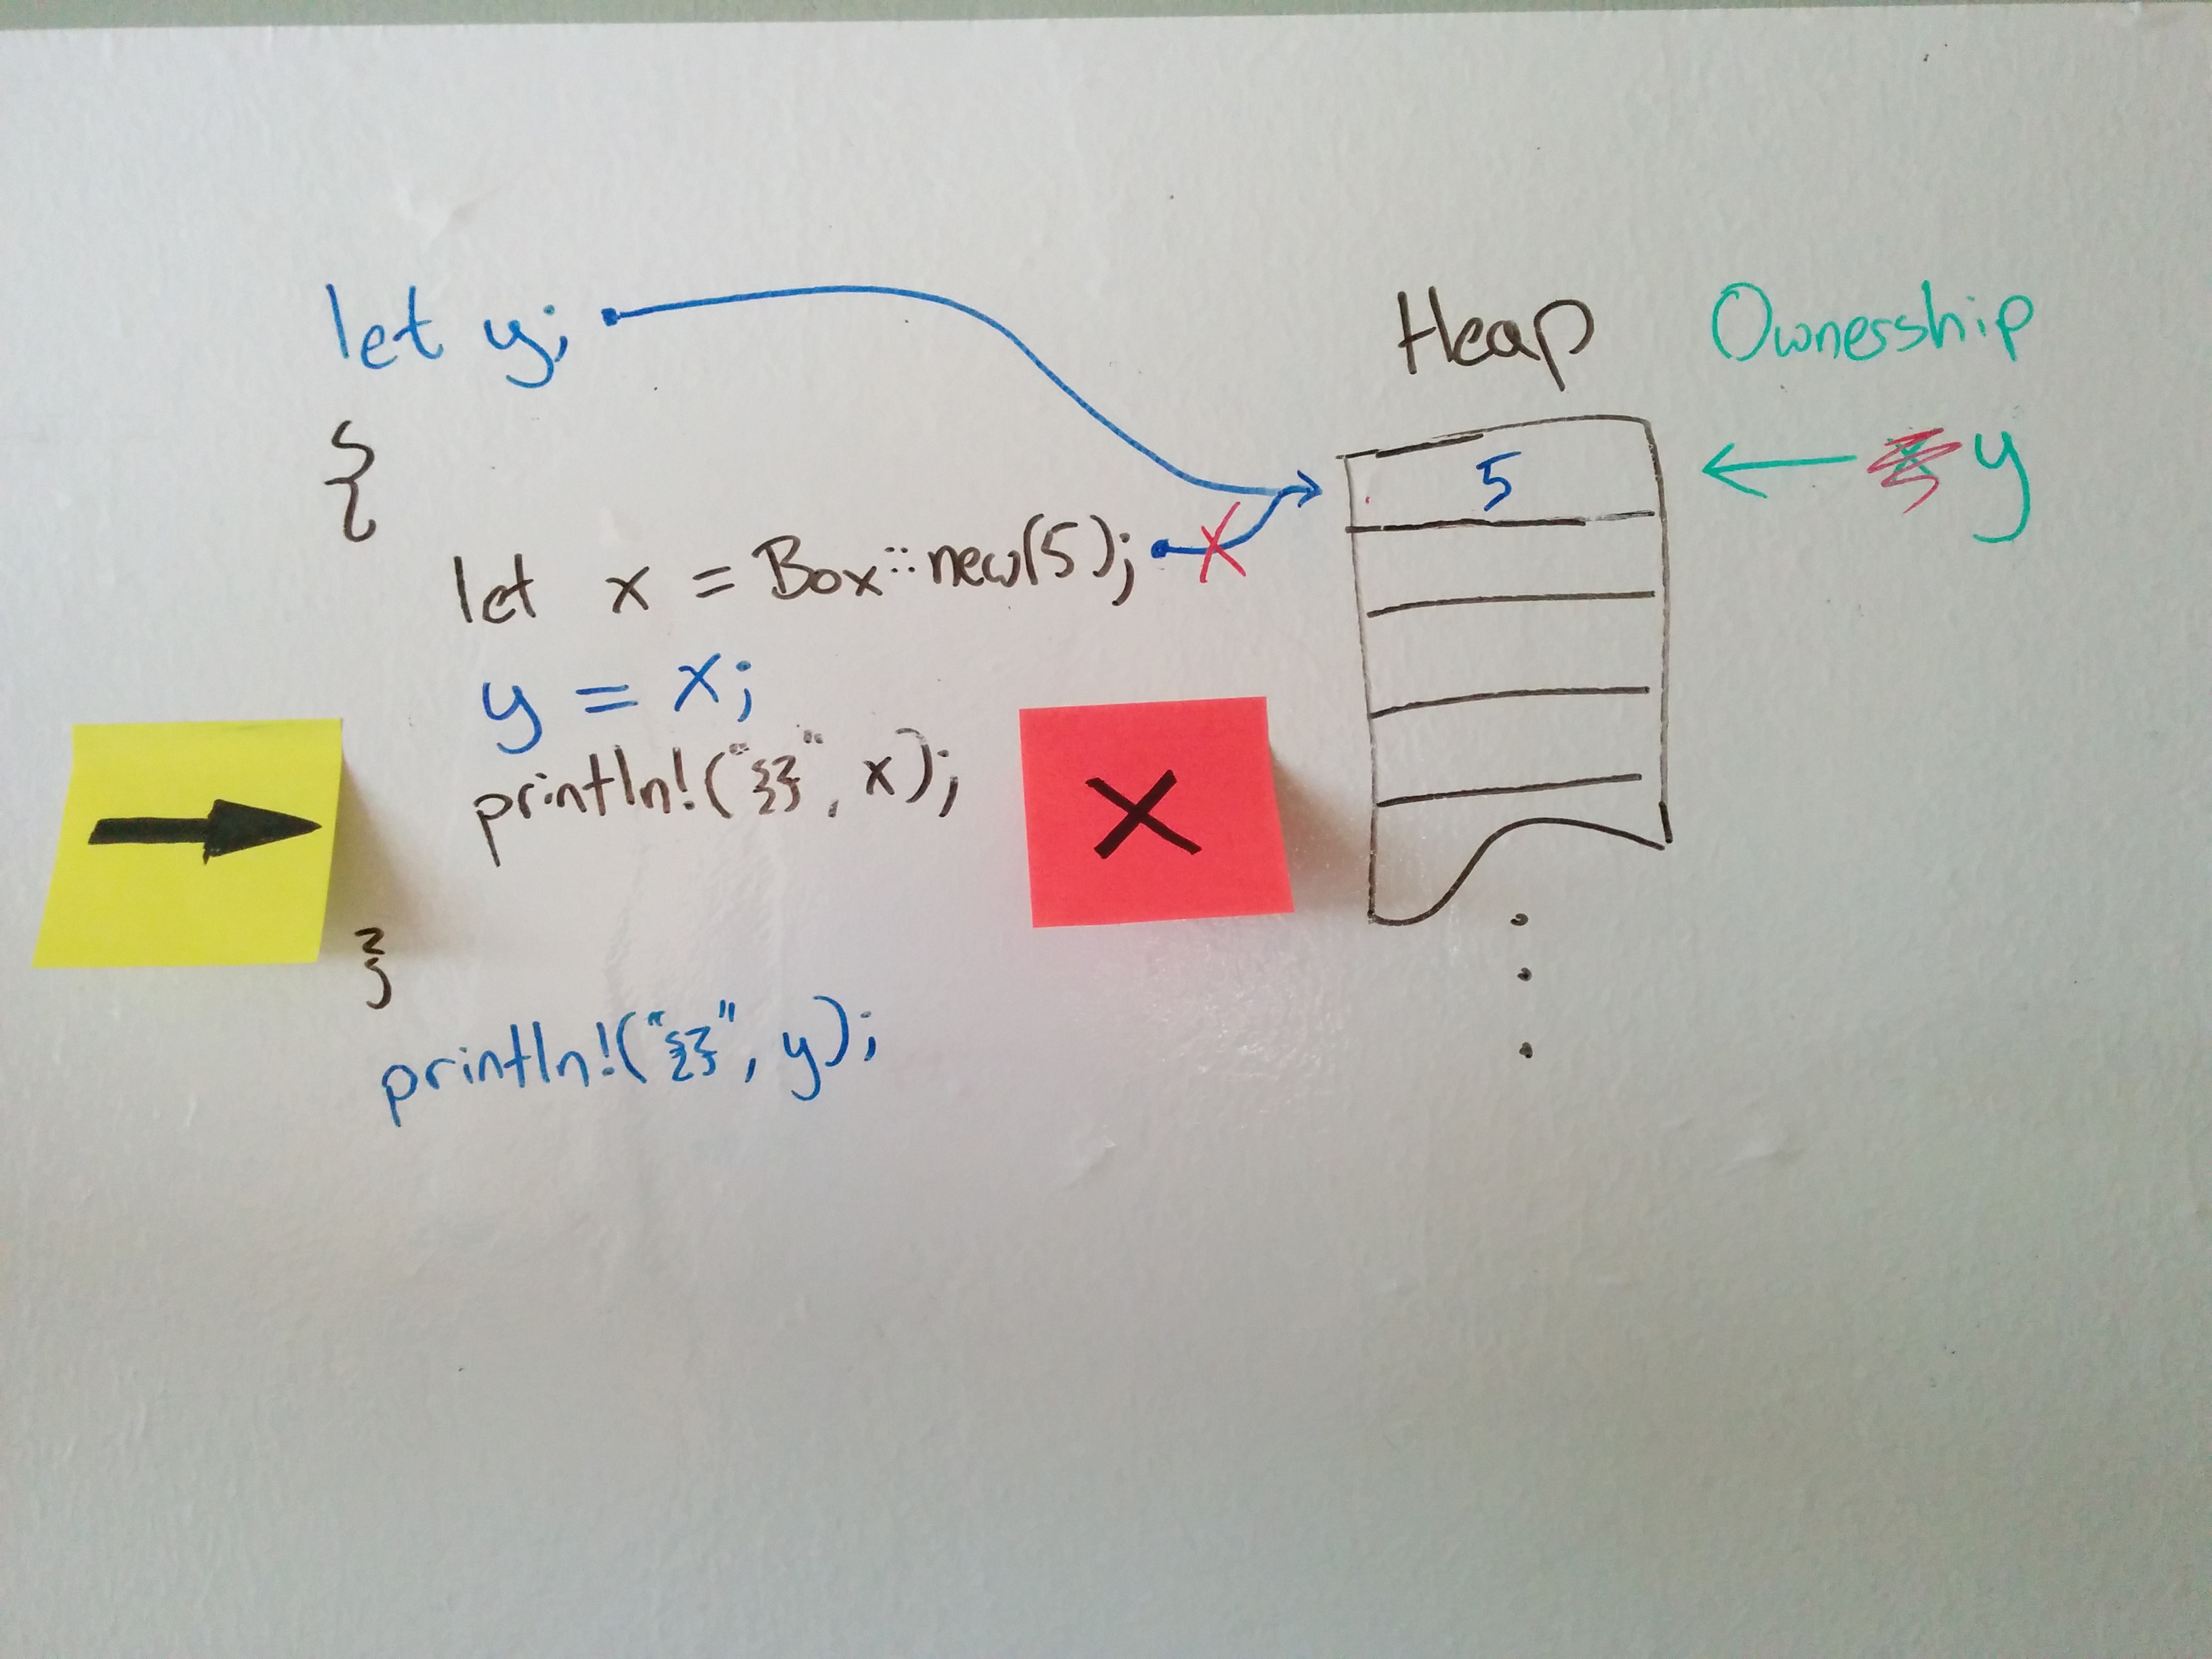 let y;
{
let x = Box::new(5);
y = x;
println!("{}", x);
}
println!("{}", y);
Heap
5
Ownership
y
X